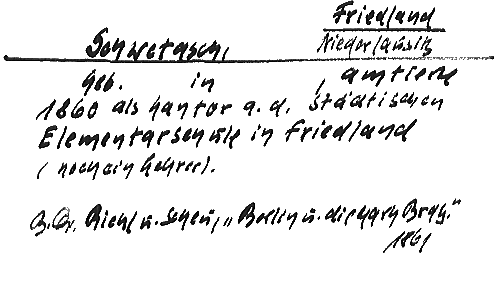 Friedland
Schwetasch, Niederlausitz
geb. in , amtiert
1860 als Kantor a.d. Städtischen
Elementarschule in Friedland
(noch ein Lehrer).
Riehl u. Scheu, „Berlin u. die Mark Brdg."
1861